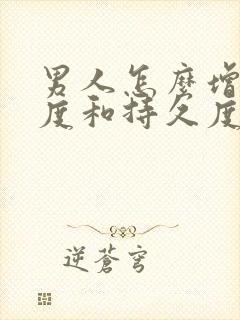 男人怎麼增
度和持久度
逆蒼穹